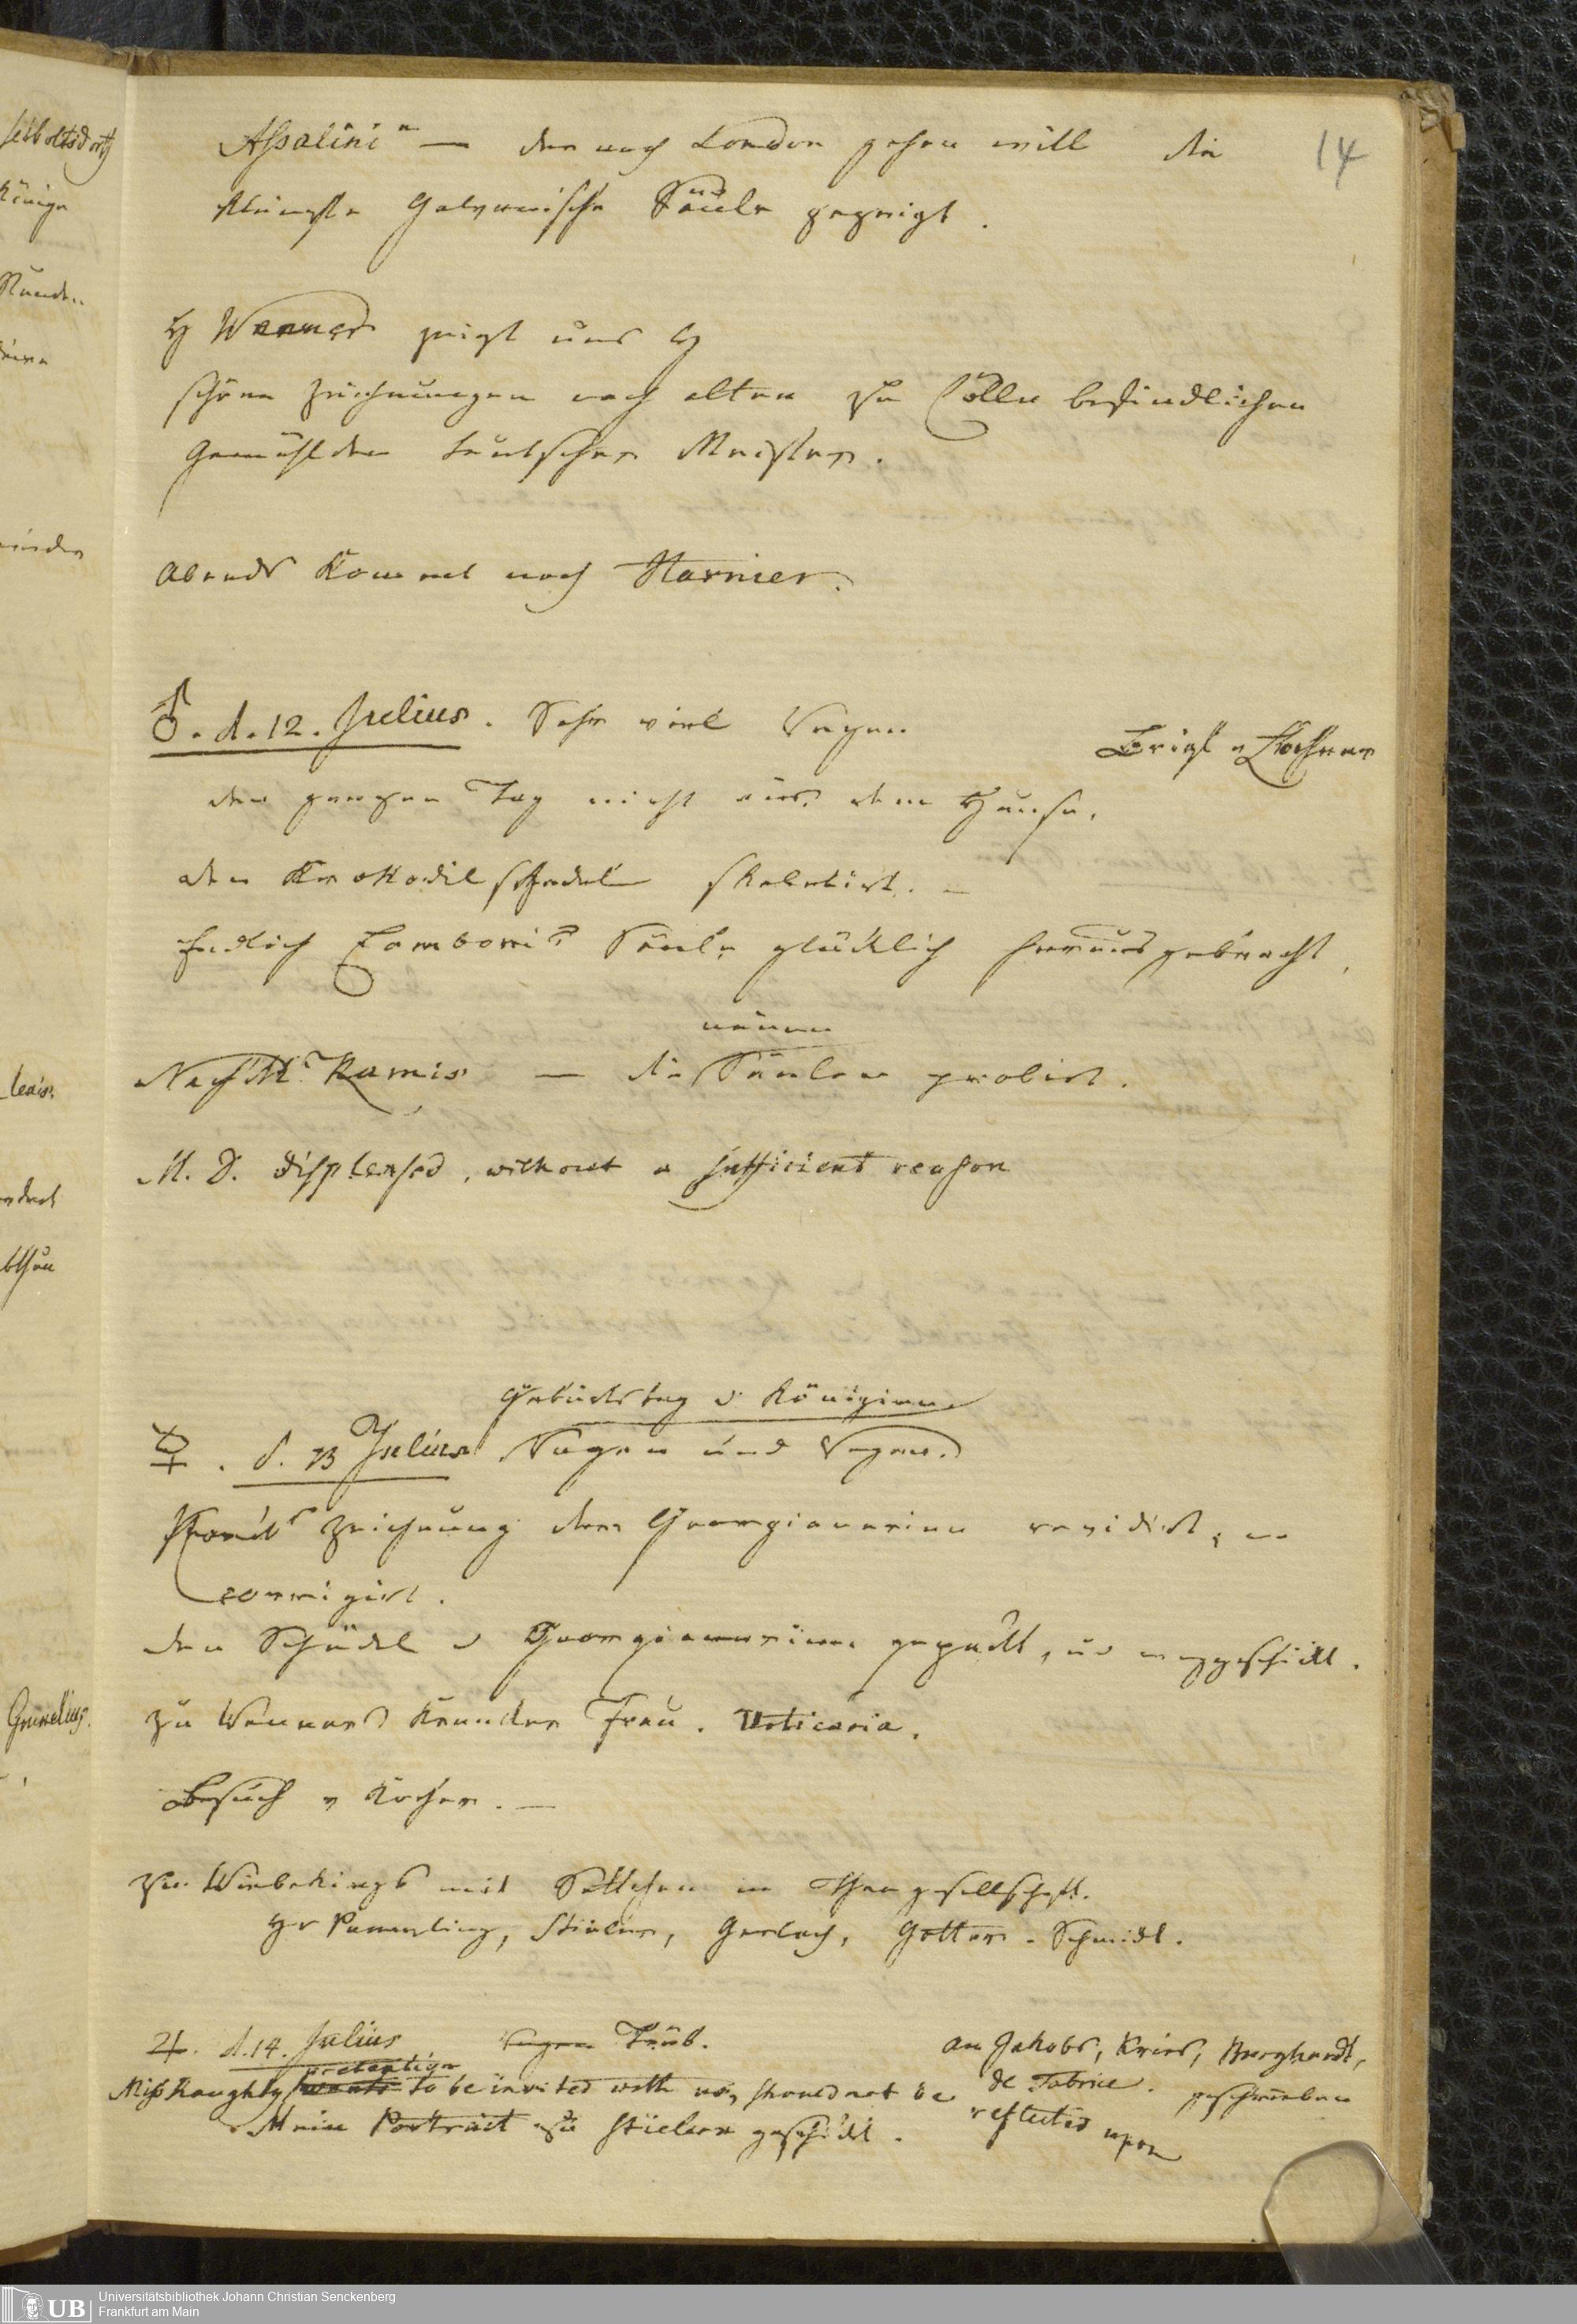 14
Assalini – der nach London gehen will die
kleinste Galvanische Säule gezeigt.
H Wenner zeigt uns
schöne Zeichnungen nach alten zu Cölln befindlichen
Gemählden teutscher Meister.
Abends kommt noch Harnier.
♂. d. 12. Julius. Sehr viel Regen
Brief v
den ganzen Tag nicht aus dem Hause.
den Krokodilschedel skeletirt. –
Endlich Zamboni's Säule glücklich herausgebracht,
neuen
Nach Ramis – die Säulen probirt.
M. D. displeased, without a sufficient reason
Gebursttag d Königinn
☿. d. 13 Julius Regen und Regen.
Zeichnung des Georgianerinn revidirt, u
corrigirt.
den Schädel d Georgianerinn gepackt, und weggeschickt.
zu Wenners kranker Frau. Urticaria.
Besuch v Kocher. –
zu Wiebekings mit Settchen in Theegesellschaft.
Hr Stieler, Gerlach, Gotter. Schmidt.
♃. d. 14. Julius Regen Trüb.
an Jakobs, Kries,
de Fabrice. geschrieben
pretention
Miss haughty wants to be invited with us, should not be
reflected upon
Mein Portrait zu Stieler geschickt.
Seiboltsdorff
Könige
Stunden
lexis.
Grunelius.
UB
Universitätsbibliothek Johann Christian Senckenberg
Frankfurt am Main